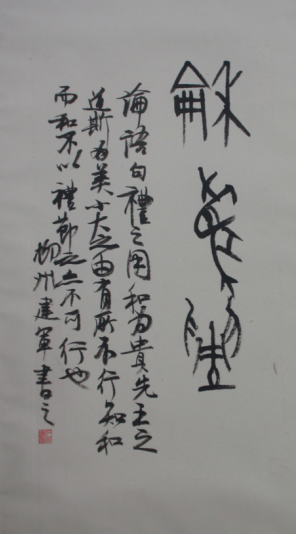 龢為貴
論語句禮之用和為貴先王之
道斯為美小大之由有所不行知和
而和不以禮節之亦不可行也
柳州建軍書之